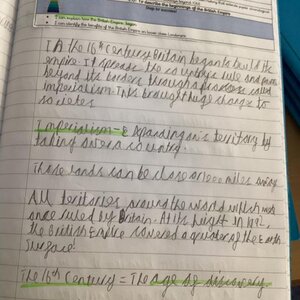 To describe the beginnings of the British Empire
I can explain how the British Empire began
I can identify the benefits of the British Empire
In the 16th Century Britain began to build its
empire. It spread the country's rule and power
beyond its borders through a process called
imperialism. This brought huge change to
societes
Imperialism = Expanding on's territory by
taking over a country.
These lands can be close or 1000 miles away
All teritories around the world which was
once ruled by Britain. At its height in 1992,
the British Empire covered a quater of the Earth
surface.
The 16th Century = The age of discovery